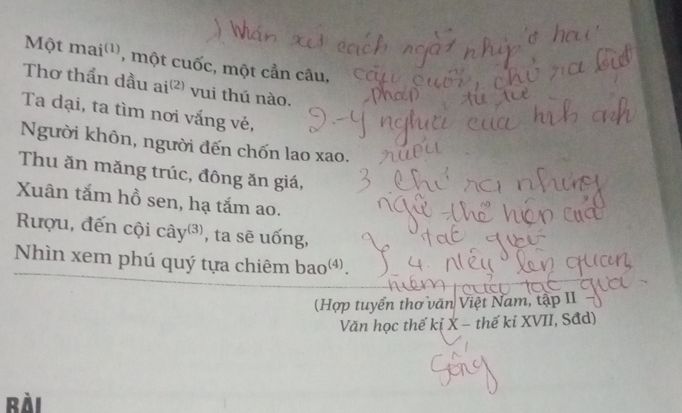 1 Nhận xét cách ngắt nhịp ở hai
câu cuối, chỉ ra biện
pháp tu từ
2. Ý nghĩa của hình ảnh
rượu
3 Chỉ ra những
ngữ thể hiện của
tác giả
4. Nêu lên quan
niệm của tác giả
sống
Một mai⁽¹⁾, một cuốc, một cần câu,
Thơ thẩn dầu ai⁽²⁾ vui thú nào.
Ta dại, ta tìm nơi vắng vẻ,
Người khôn, người đến chốn lao xao.
Thu ăn măng trúc, đông ăn giá,
Xuân tắm hồ sen, hạ tắm ao.
Rượu, đến cội cây⁽³⁾, ta sẽ uống,
Nhìn xem phú quý tựa chiêm bao⁽⁴⁾.
(Hợp tuyển thơ văn Việt Nam, tập II
Văn học thế kỉ X – thế kỉ XVII, Sđd)
BÀI